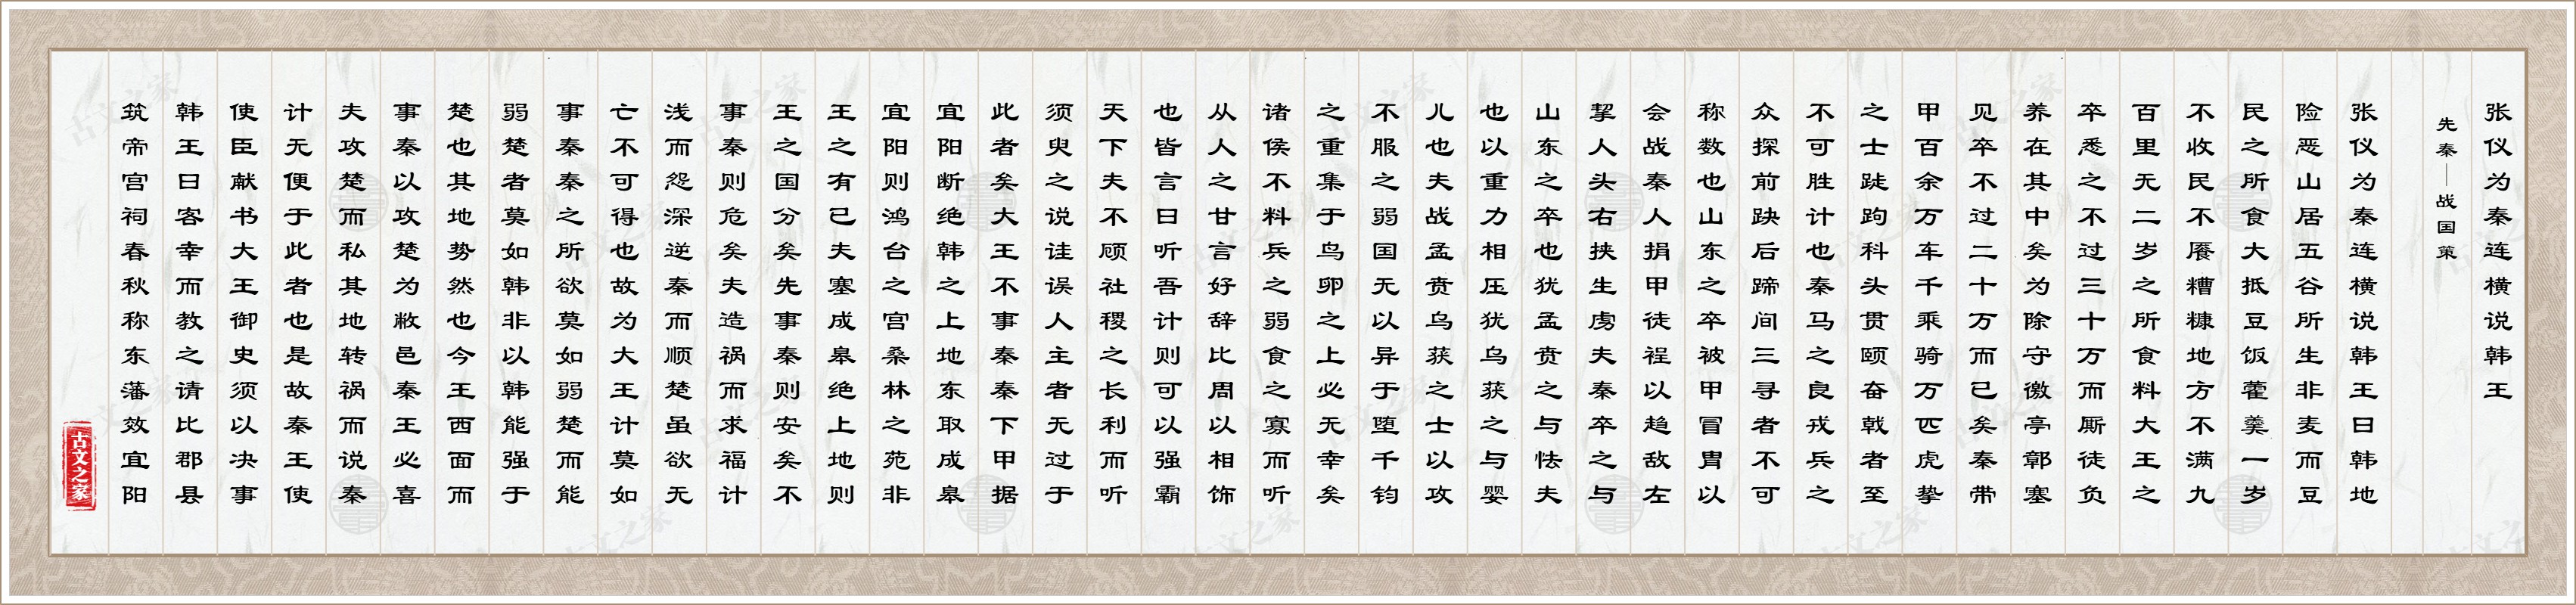 张仪为秦连横说韩王
先秦——战国策
张仪为秦连横说韩王曰韩地
险恶山居五谷所生非麦而豆
民之所食大抵豆饭藿羹一岁
不收民不餍糟糠地方不满九
百里无二岁之所食料大王之
卒悉之不过三十万而厮徒负
养在其中矣为除守徼亭鄣塞
见卒不过二十万而已矣秦带
甲百余万车千乘骑万匹虎挚
之士跿跔科头贯颐奋戟者至
不可胜计也秦马之良戎兵之
众探前趹后蹄间三寻者不可
称数也山东之卒被甲冒胄以
会战秦人捐甲徒裎以趋敌左
挈人头右挟生虏夫秦卒之与
山东之卒也犹孟贲之与怯夫
也以重力相压犹乌获之与婴
儿也夫战孟贲乌获之士以攻
不服之弱国无以异于堕千钧
之重集于鸟卵之上必无幸矣
诸侯不料兵之弱食之寡而听
从人之甘言好辞比周以相饰
也皆言曰听吾计则可以强霸
天下夫不顾社稷之长利而听
须臾之说诖误人主者无过于
此者矣大王不事秦秦下甲据
宜阳断绝韩之上地东取成皋
宜阳则鸿台之宫桑林之苑非
王之有已夫塞成皋绝上地则
王之国分矣先事秦则安矣不
事秦则危矣夫造祸而求福计
浅而怨深逆秦而顺楚虽欲无
亡不可得也故为大王计莫如
事秦秦之所欲莫如弱楚而能
弱楚者莫如韩非以韩能强于
楚也其地势然也今王西面而
事秦以攻楚为敝邑秦王必喜
夫攻楚而私其地转祸而说秦
计无便于此者也是故秦王使
使臣献书大王御史须以决事
韩王曰客幸而教之请比郡县
筑帝宫祠春秋称东藩效宜阳
古文之家